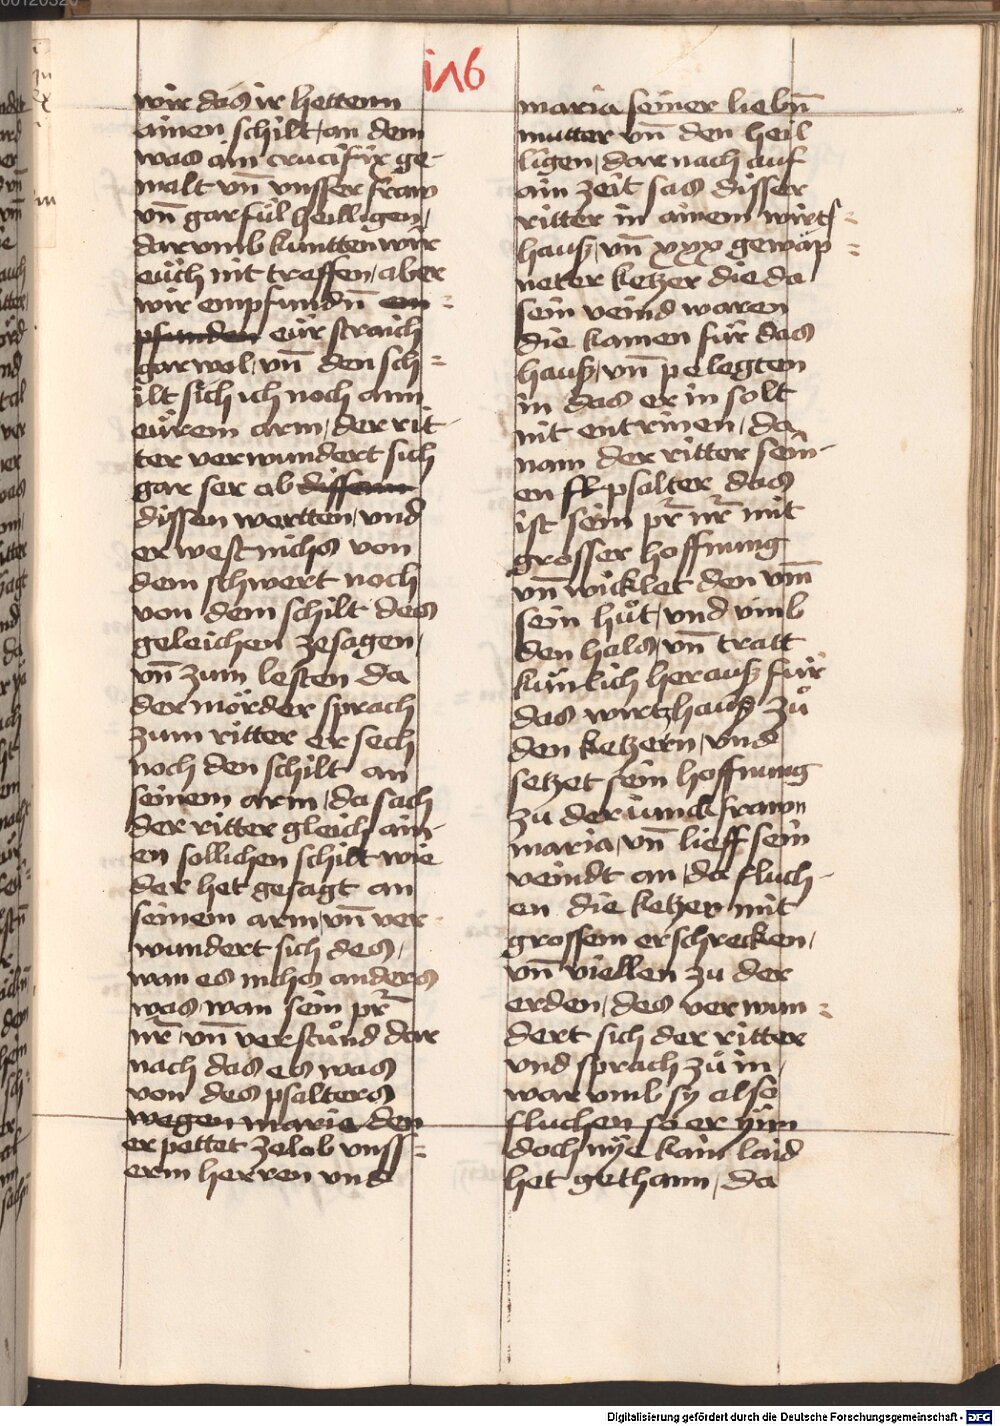 i㆑6
wir das ir hettenn
ainen schilt / an dem
was ain crucifix ge-
malt vn̄ vnsser fraw
vn̄ gar fül heilligen /
dar vmb kuntten wir
eüch nit treffen / aber
wir empfundn̄ em=
pfunden eür straich
gar wol / vn̄ den sch=
ilt sich ich noch ann
eürem arm / der rit-
ter verwundert sich
gar ser ab dissenn
dissen wortten / vnd
er west nichs von
dem schwert noch
von dem schilt des
geleichen ze sagen /
vn̄ zum lesten da
der mörder sprach
zum ritter er sech
noch den schilt an
seinem arm / da sach
der ritter gleich ain-
en sollichen schilt wie
der het gesagt an
seinem arm / vn̄ ver-
wundert sich des /
wan es nichs anders
was / wan sein pr̄
nr̄ / vn̄ verstůnd dar
nach das es was
von des psalters
wegen marie den
er pettet ze lob vnss=
erm herren vnd
maria seiner liebn̄
mutter vn̄ den heil
ligen / dar nach auf
ain zeit sas disser
ritter in ainem wirts=
hauß / vn̄ xxx gewap=
neter ketzer die da
sein veind waren
die kamen für das
hauß / vn̄ pelegten
in das er in solt
nit entrinen / da
nam der ritter sein-
en psalter das
ist sein pr̄ nr̄ mit
grosser hoffnung
vn̄ wicklet den vm̄
sein hůt / vnd vmb
den hals / vn̄ tratt
künlich herauß für
das wirtzhauß zů
den ketzern / vnd
setzet sein hoffnung
zu der iunckfrawn
maria / vn̄ lieff sein
veindt an / da fluch-
en die ketzer mit
grossem erschrecken /
vn̄ viellen zu der
erden / des verwun=
dert sich der ritter
vnd sprach zů in /
war vmb sy also
fluchen so er yim
doch nye kain laid
het gethann / da
Digitalisierung gefördert durch die Deutsche Forschungsgemeinschaft - DFG